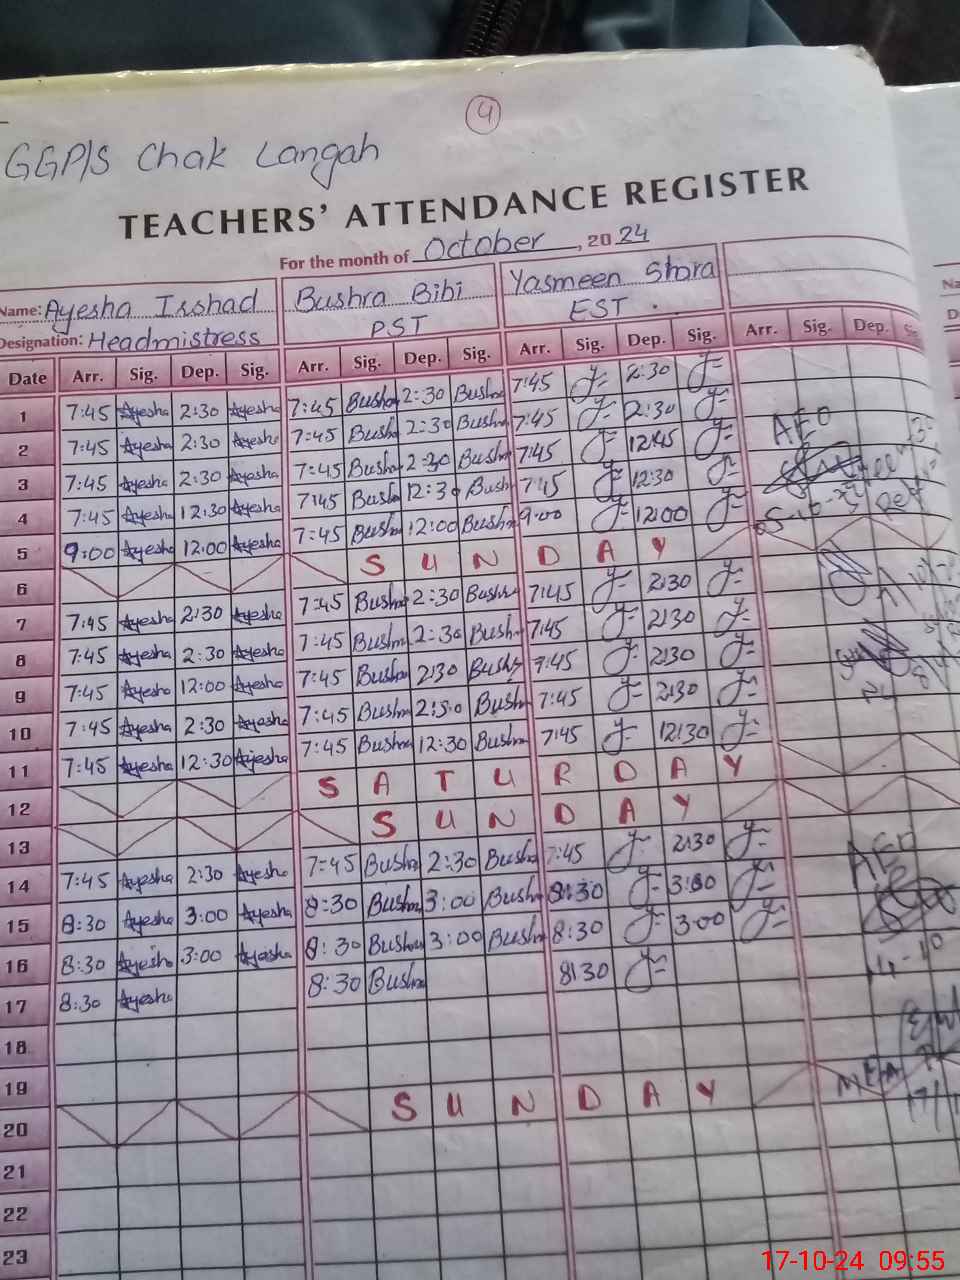 4
GGP/S Chak Langah
TEACHERS' ATTENDANCE REGISTER
For the month of October, 2024
Name: Ayesha Irshad Bushra Bibi Yasmeen Shora
Designation: Headmistress PST EST
Date Arr. Sig. Dep. Sig. Arr. Sig. Dep. Sig. Arr. Sig. Dep. Sig. Arr. Sig. Dep.
1 7:45 Ayesha 2:30 Ayesha 7:45 Bushra 2:30 Bushra 7:45 2:30
2 7:45 Ayesha 2:30 Ayesha 7:45 Bushra 2:30 Bushra 7:45 2:30 AEO
3 7:45 Ayesha 2:30 Ayesha 7:45 Bushra 2:30 Bushra 7:45 12:45
4 7:45 Ayesha 12:30 Ayesha 7:45 Bushra 12:30 Bushra 7:45 12:30
5 9:00 Ayesha 12:00 Ayesha 7:45 Bushra 12:00 Bushra 9:00 12:00
6 SUNDAY
7 7:45 Ayesha 2:30 Ayesha 7:45 Bushra 2:30 Bushra 7:45 2:30
8 7:45 Ayesha 2:30 Ayesha 7:45 Bushra 2:30 Bushra 7:45 2:30
9 7:45 Ayesha 12:00 Ayesha 7:45 Bushra 2:30 Bushra 7:45 2:30
10 7:45 Ayesha 2:30 Ayesha 7:45 Bushra Bushra 7:45 2:30
11 7:45 Ayesha 12:30 Ayesha 7:45 Bushra 12:30 Bushra 7:45 12:30
12 SATURDAY
13 SUNDAY
14 7:45 Ayesha 2:30 Ayesha 7:45 Bushra 2:30 Bushra 7:45 2:30 AEO
15 8:30 Ayesha 3:00 Ayesha 8:30 Bushra 3:00 Bushra 8:30 3:00
16 8:30 Ayesha 3:00 Ayesha 8:30 Bushra 3:00 Bushra 8:30 3:00
17 8:30 Ayesha 8:30 Bushra 8:30
18
19 MEA
20 SUNDAY
21
22
23
17-10-24 09:55